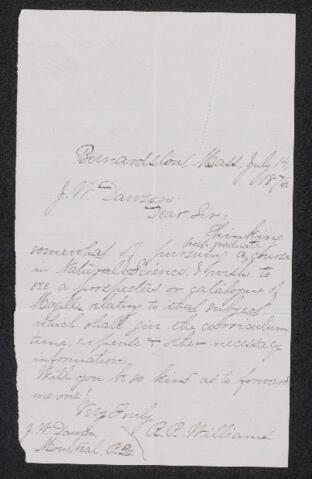 Bernardston, Mass, July 1
187
J. W. Dawson
Dear Sir:
Thinking
somewhat of pursuing a post-graduate course
in Natural Science. I wish to
see a prospectus or catalogue of
McGill relating to that subject
which shall give the curriculum
time, expense & other necessary
information.
Will you be so kind as to forward
me one?
Very Truly
R. P. Williams.
J. W. Dawson
Montreal, P.Q.